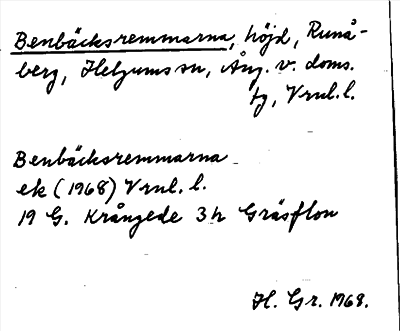 Benbäcksremmarna, höjd, Runå-
berg, Helgums sn, Ång. v. doms.
tg, Vrnl. l.
Benbäcksremmarna
ek (1968) Vrnl. l.
19 G. Krångede 3h Gräsflon
H. Gr. 1968.